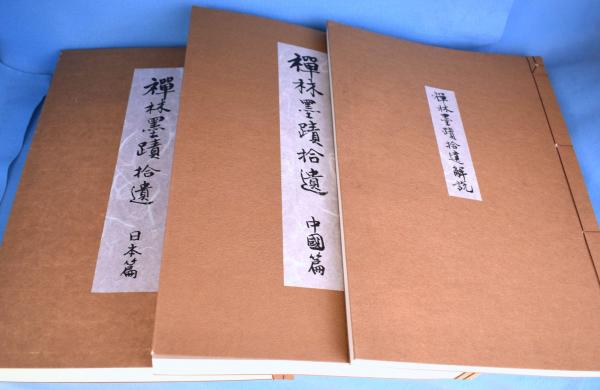 禪林墨蹟拾遺
日本篇
禪林墨蹟拾遺
中國篇
禪林墨蹟拾遺解説